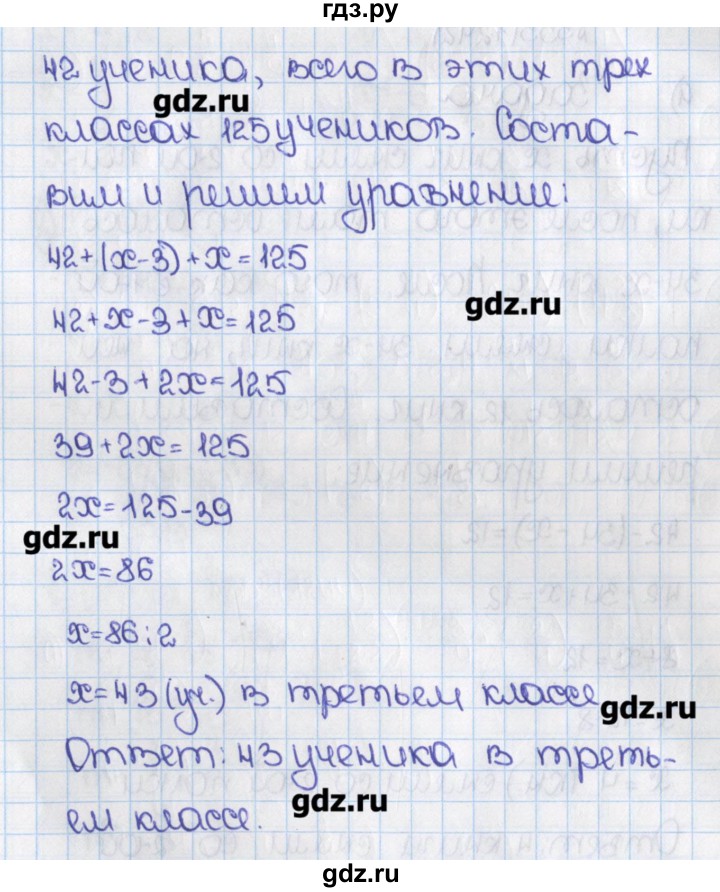 гдз.ру
42 ученика, всего в этих трех
gdz.ru
классах 125 учеников. Соста-
вим и решим уравнение:
42+(x-3)+x=125
gdz.ru
42+x-3+x=125
42-3+2x=125
39+2x=125
2x=125-39
gdz.ru
2x=86
x=86:2
x=43(уч.) в третьем классе
gdz.ru
Ответ: 43 ученика в треть-
gdz.ru
ем классе.
gdz.ru